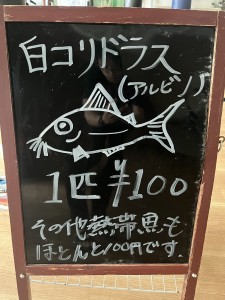 白コリドラス
(アルビノ)
1匹 ¥100
その他熱帯魚も
ほとんど100円です.